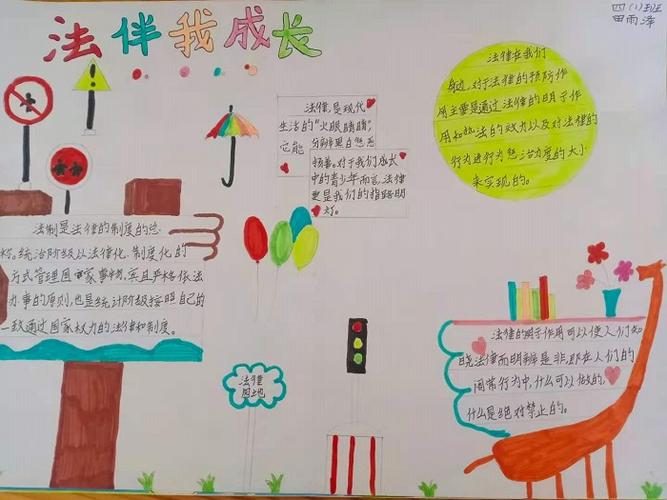 四(1)班
田雨泽
法伴我成长
法律在我们
身边,对于法律的预防作
用主要是通过法律的明示作
用和执法的效力以及对法律的
行为进行为惩治力度的大小
来实现的。
法律,是现代
生活的“火眼睛睛”,
它能 分辨黑白惩恶
扬善。对于我们成长
中的青少年而言,法律
更是我们的指路明
灯。
法制是法律的制度的总
称。统治阶级以法律化、制度化的
方式管理国家事物,实且严格依法
办事的原则,也是统计阶级按照自己的
通过国家权力的法律和制度。
法律
园地
法律的明示作用可以使人们知
晓法律而明辨是非,即在人们的
常行为中,什么可以做的,
什么是绝对禁止的。